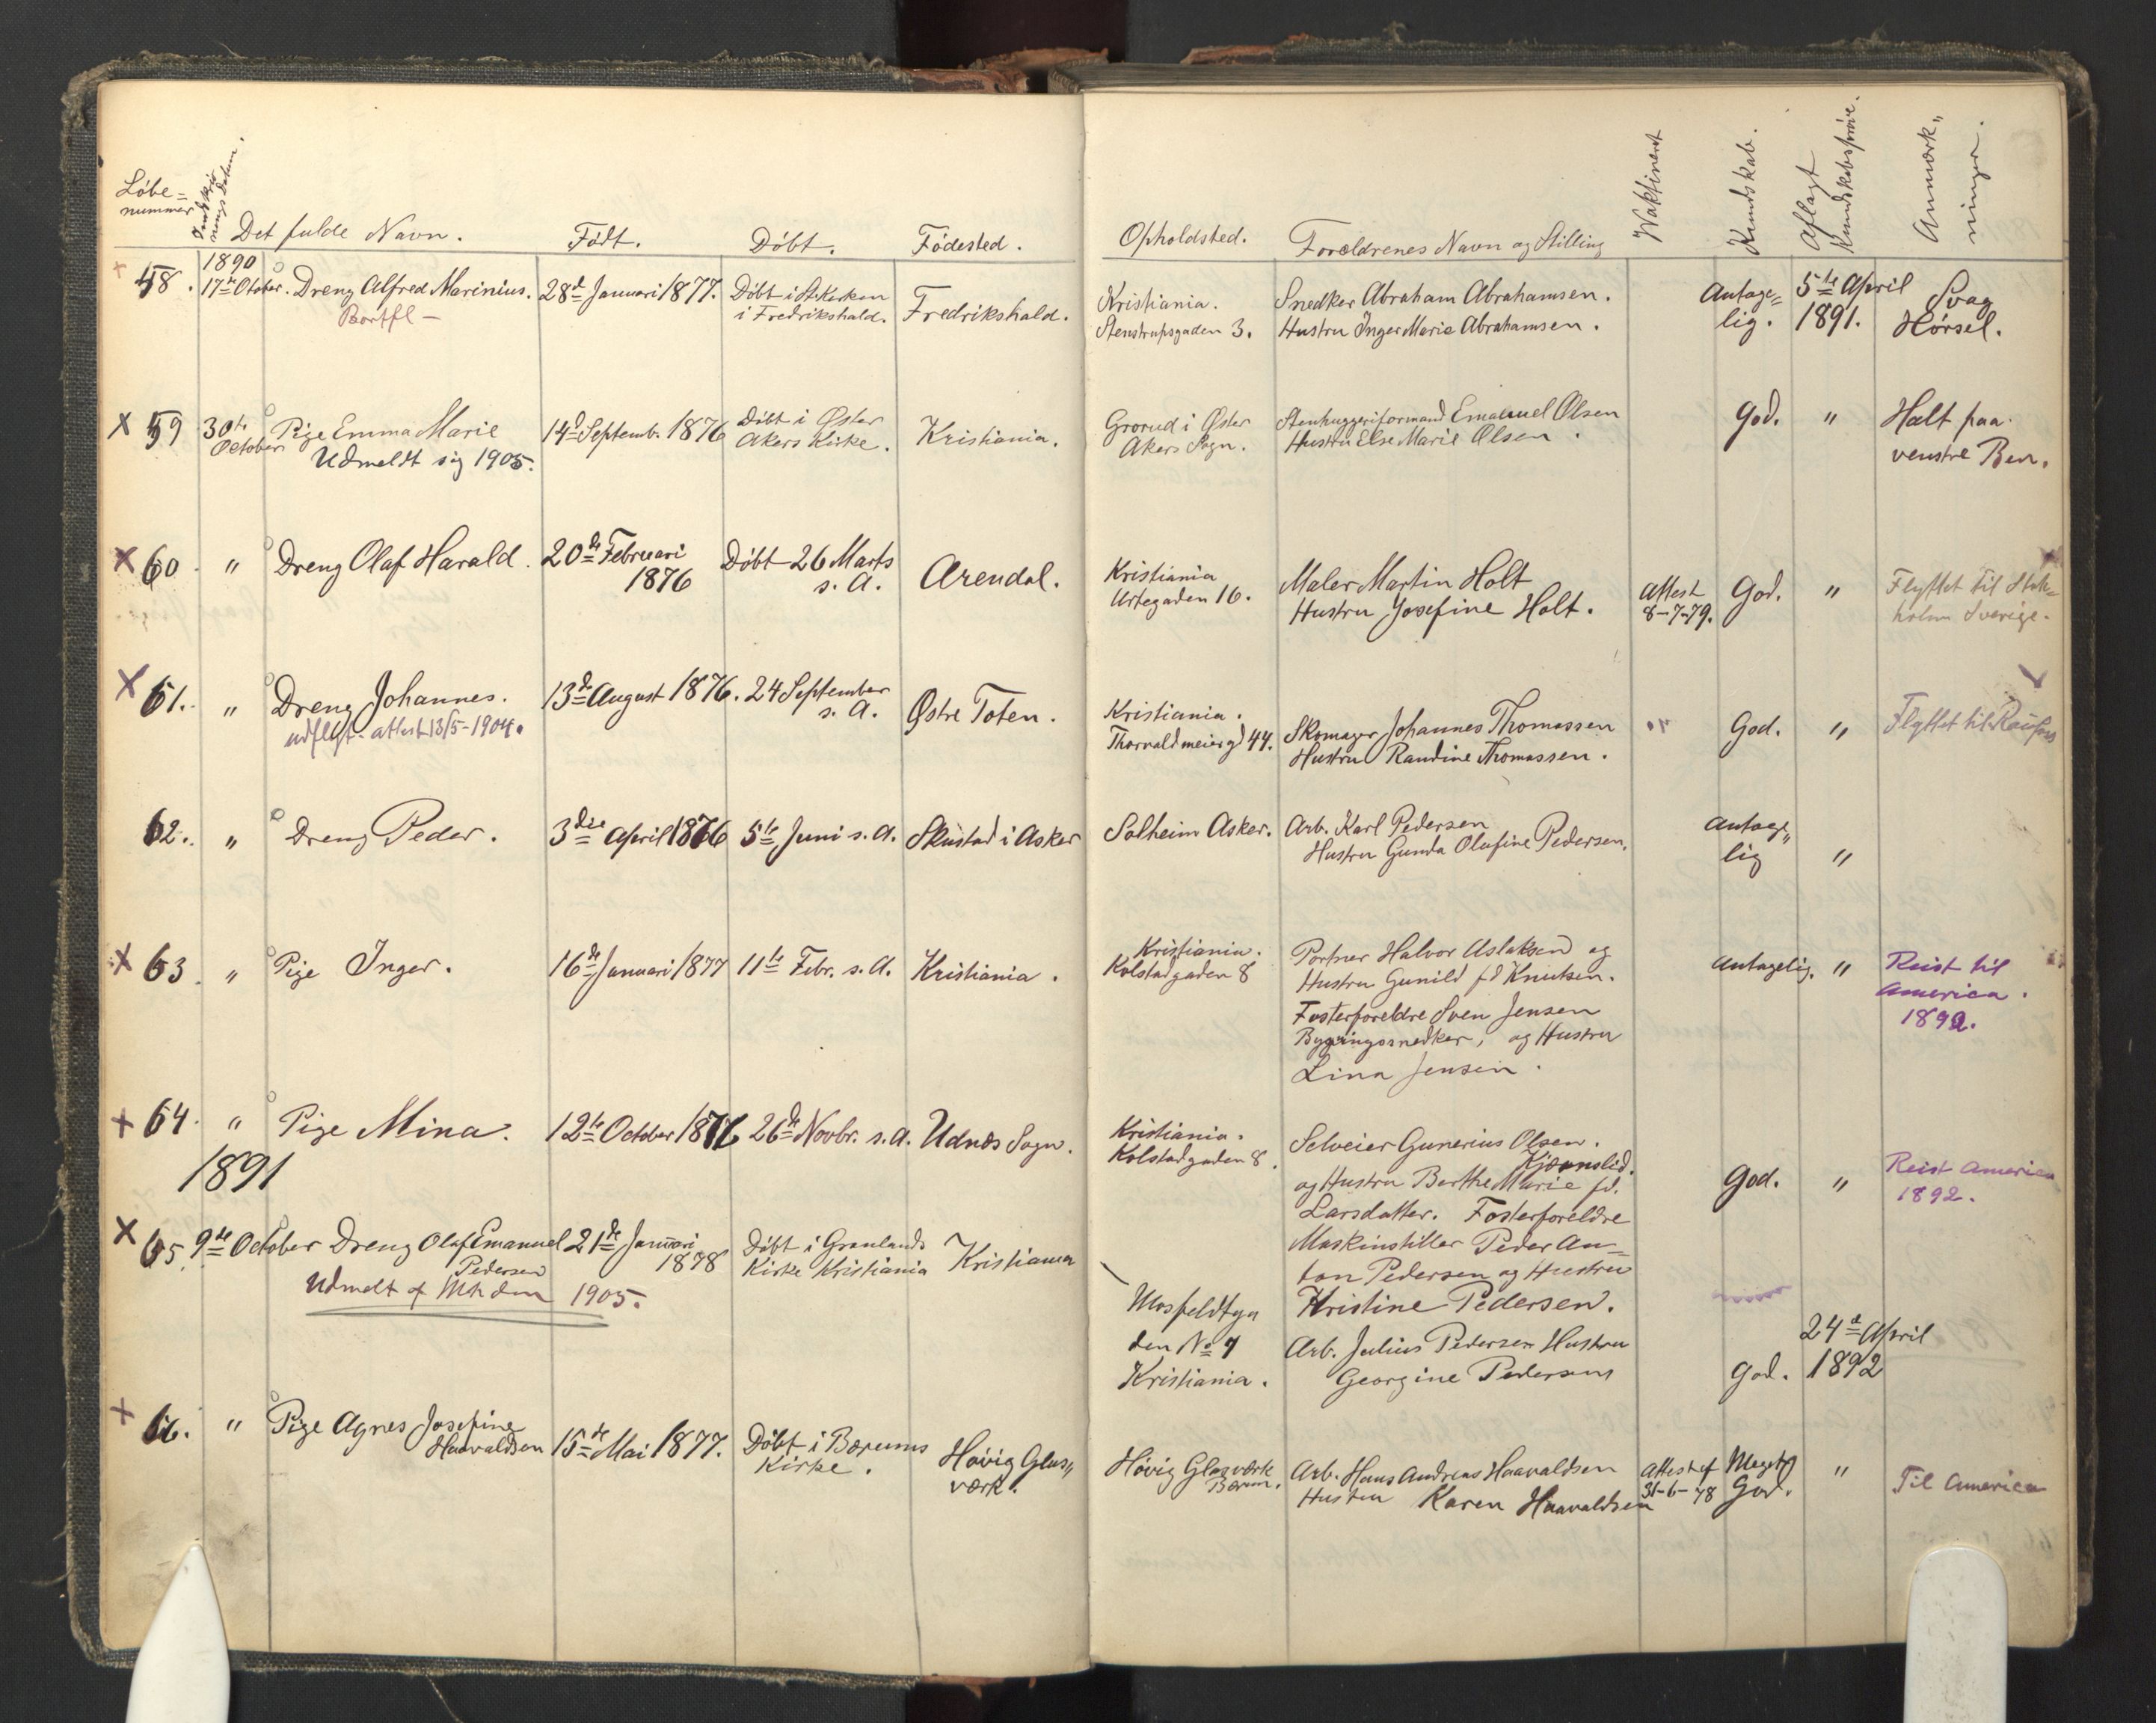 Löbe=
nummer
Indskriv
nings Datum.
Det fulde Navn.
Födt.
Döbt.
Födested.
Opholdsted.
Forældrenes Navn og Stilling
Waktineret
Kundskab.
Aflagt
Kundskabspröve.
Anmærk„
ninger.
58. 1890
17de Otober. Dreng Alfred Marinius. 28d Januari 1877. Döbt i St. Kirken
i Fredrikshald. Fredrikshald.
Bortfl—
Kristiania.
Stenstrupsgaden 3.
Snedker Abraham Abrahamsen.
Hustru Inger Marie Abrahamsen.
Antage=
lig.
5te April
1891.
Svag
Hörsel.
X 59 30te
October
Pige Emma Marie
Udmeldt sig 1905.
14d Septemb. 1876
Döbt i Øster
Akers Kirke.
Kristiania.
Grorud i Øster
Akers Sogn.
Stenhuggeriformand Emanuel Olsen
Hustru Else Marie Olsen.
God.
"
Halt paa
venstre Ben.
X 60 " Dreng Olaf Harald.
20de Februari
1876
Döbt 26 Marts
s. A.
Arendal.
Kristiania
Urtegaden 16.
Maler Martin Holt
Hustru Josefine Holt.
Attest
8-7-79.
God.
"
Flyttet til Stok=
holm Sverige.
X 61. " Dreng Johannes.
udflyt. attest 13/5-1904.
13de August 1876.
24 September
s. A.
Østre Toten.
Kristiania.
Thorvaldmeiersgd 44.
Skomager Johannes Thomassen
Hustru Randine Thomassen.
"
God.
"
Flyttet til Raufoss
62. " Dreng Peder.
3die April 1876
5te Juni s. A.
Skustad i Asker
Solheim Asker.
Arb. Karl Pedersen
Hustru Gunda Olufine Pedersen.
Antage„
lig
"
X 63. " Pige Inger.
16de Januari 1877
11te Febr. s. A.
Kristiania.
Kristiania.
Kolstadgaden 8
Portner Halvor Aslaksen og
Hustru Gunild fd Knutsen.
Fosterforeldre Sven Jensen
Bygningssnedker, og Hustru
Lina Jensen.
Antagelig.
"
Reist til
America.
1892.
+ 64. " Pige Mina.
12te October 1876
26de Novbr. s. A.
Udnæs Sogn.
Kristiania.
Kolstadgaden 8.
Selveier Gunerius Olsen.
Kjærnslid.
og Hustru Berthe Marie fd.
Larsdatter. Fosterforeldre
Maskinstiller Peder An=
ton Pedersen og Hustru
Kristine Pedersen.
God.
"
Reist America
1892.
1891
X 65. 9de October Dreng Olaf Emanuel
Pedersen
Udmelt af Mh den 1905.
21de Januari
1878
Döbt i Grønlands
Kirke Kristiania
Kristiania
Mosfeldtga
den No 7
Kristiania.
Arb. Julius Pedersen Hustru
Georgine Pedersens
God.
24d April
1892
+ 66. " Pige Agnes Josefine
Haavaldsen
15de Mai 1877.
Döbt i Bærums
Kirke.
Hövig Glas„
værk.
Hövig Glasværk
Bærum.
Arb. Hans Andreas Haavaldsen
Hustru Karen Haavaldsen
Attest af
31-6-78
Meget
God.
"
Til America